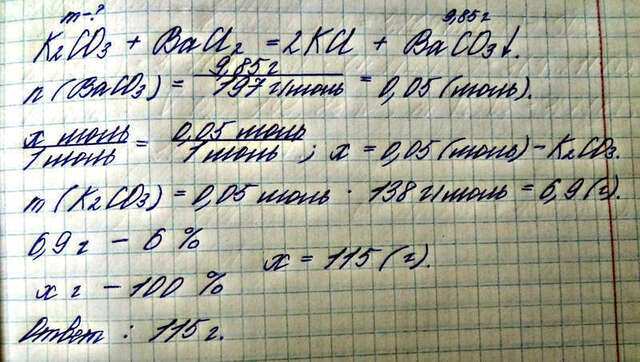 m-? 9,85 г
K2CO3 + BaCl2 = 2KCl + BaCO3↓.
n(BaCO3) = 9,85 г / 197 г/моль = 0,05 (моль).
x моль / 1 моль = 0,05 моль / 1 моль ; x = 0,05 (моль) - K2CO3.
m(K2CO3) = 0,05 моль · 138 г/моль = 6,9 (г).
6,9 г - 6 %
x = 115 (г).
x г - 100 %
Ответ : 115 г.